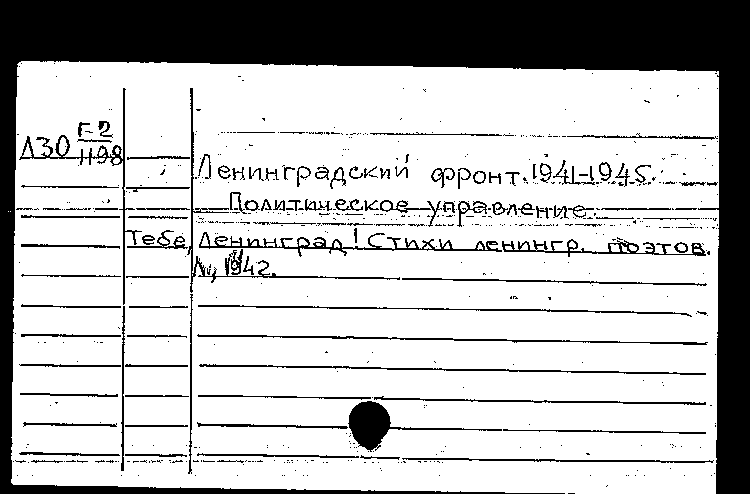 Л30 Г-2
1198
Ленинградский фронт. 1941-1945.
Политическое управление.
Тебе, Ленинград! Стихи ленингр. поэтов.
1942.